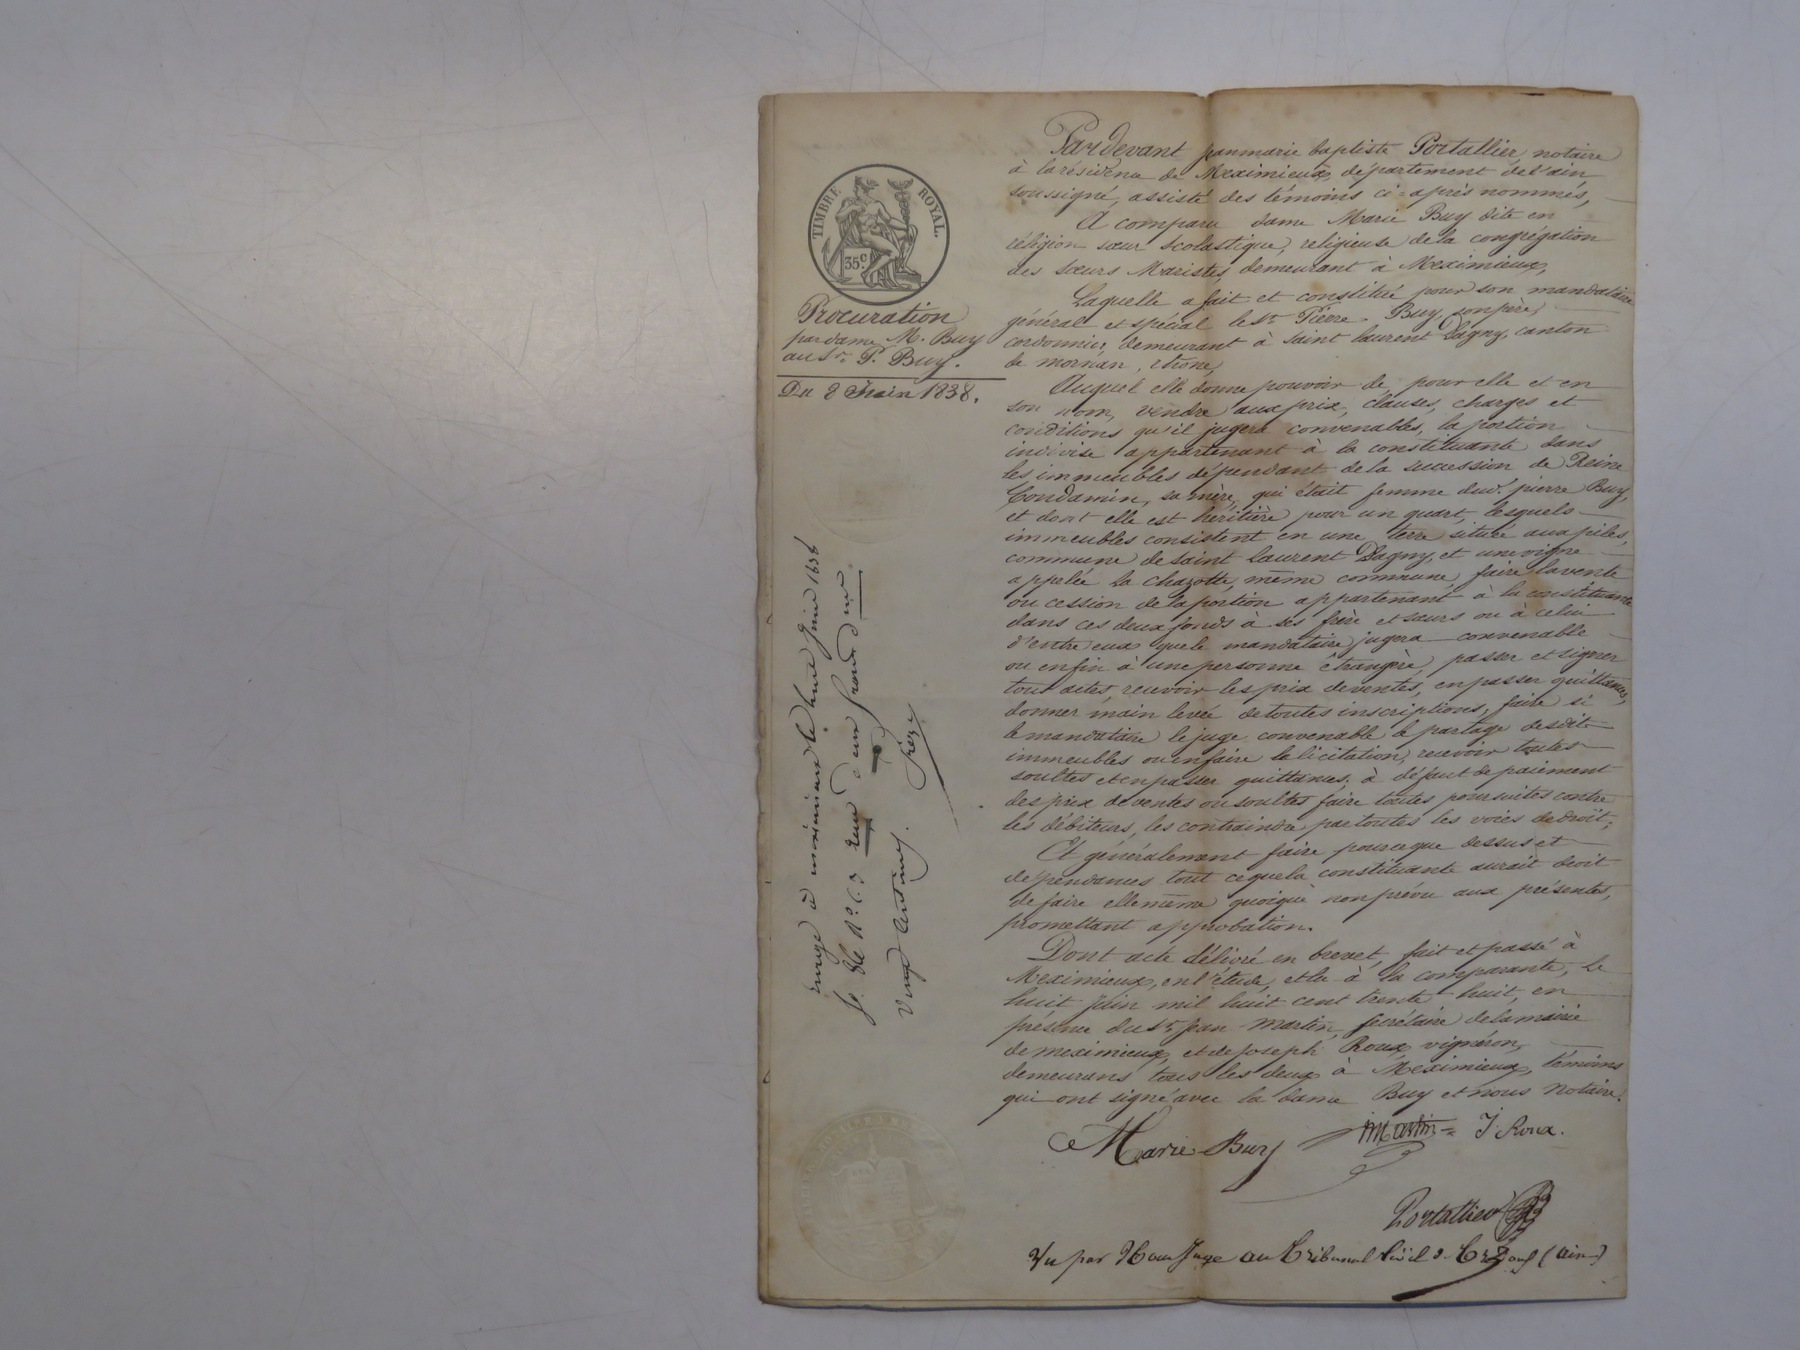 TIMBRE ROYAL.
35c.
Procuration
par dame M. Buy
au Sr. P. Buy.
Du 8 Juin 1838.
Pardevant jeanmarie baptiste Portallier, notaire
à la résidence de Meximieux, département de l'ain
soussigné, assisté des témoins ci-après nommés,
A comparu dame Marie Buy dite en
réligion sœur Scolastique, religieuse de la congrégation
des sœurs Maristes, demeurant à Meximieux,
Laquelle a fait et constitué pour son mandataire
général et spécial le Sr. Pierre Buy, son père,
cordonnier, demeurant à Saint laurent Dagny, canton
de mornan, rhone,
Auquel elle donne pouvoir de, pour elle et en
son nom, vendre aux prix, clauses, charges et
conditions qu'il jugera convenables, la portion
indivise appartenant à la constituante dans
les immeubles dépendant de la succession de Reine
Condamin, sa mère, qui était femme dud. pierre Buy,
et dont elle est héritière pour un quart, lesquels
immeubles consistent en une terre située aux piles,
commune de Saint laurent Dagny, et une vigne
appelée la chazotte, même commune, faire la vente
ou cession de la portion appartenant à la constituante
dans ces deux fonds à ses frère et sœurs ou à celui
d'entre eux que le mandataire jugera convenable
ou enfin à une personne étrangère, passer et signer
tous actes, recevoir les prix de ventes, en passer quittances,
donner main levée de toutes inscriptions, faire si
le mandataire le juge convenable le partage desdits
immeubles ou en faire la licitation, recevoir toutes
soultes et en passer quittances, à défaut de paiement
des prix de ventes ou soultes faire toutes poursuites contre
les débiteurs, les contraindre par toutes les voies de droit;
Et généralement faire pour ce que dessus et
dépendances tout ce que la constituante aurait droit
de faire elle même quoique non prévu aux présentes,
promettant approbation.
Dont acte délivré en brevet, fait et passé à
Meximieux, en l'étude, et lu à la comparante, le
huit Juin mil huit cent trente huit, en
présence du Sr. jean Martin, secrétaire de la mairie
de meximieux, et de joseph Roux, vigneron,
demeurans tous les deux à Meximieux, témoins
qui ont signé avec la dame Buy et nous Notaire.
Marie Buy Martin J. Roux.
Portallier
Vu par Nous Juge au Tribunal Civil de Trévoux (Ain)
à meximieux le huit Juin 1838
fo. 86 Ro. C. 3 reçu deux francs
vingt centimes.